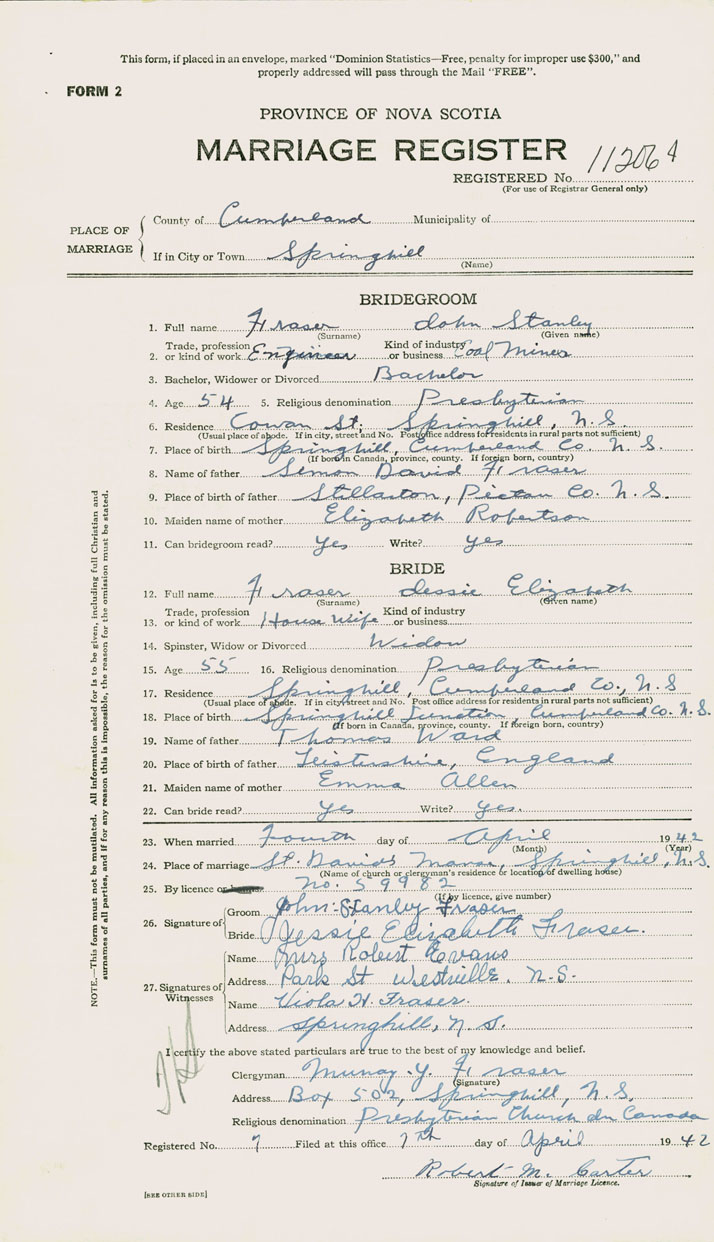 This form, if placed in an envelope, marked "Dominion Statistics—Free, penalty for improper use $300," and
properly addressed will pass through the Mail "FREE".
FORM 2
PROVINCE OF NOVA SCOTIA
MARRIAGE REGISTER
REGISTERED No. 11206
(For use of Registrar General only)
PLACE OF MARRIAGE
County of Cumberland Municipality of
If in City or Town Springhill
(Name)
BRIDEGROOM
1. Full name Fraser John Stanley
(Surname) (Given name)
2. Trade, profession or kind of work Engineer Kind of industry or business Coal Mines
3. Bachelor, Widower or Divorced Bachelor
4. Age 54 5. Religious denomination Presbyterian
6. Residence Cowan St; Springhill, N.S.
(Usual place of abode. If in city, street and No. Post office address for residents in rural parts not sufficient)
7. Place of birth Springhill, Cumberland Co. N.S.
(If born in Canada, province, county. If foreign born, country)
8. Name of father Simon David Fraser
9. Place of birth of father Stellarton, Pictou Co. N.S.
10. Maiden name of mother Elizabeth Robertson
11. Can bridegroom read? yes Write? yes
BRIDE
12. Full name Fraser Jessie Elizabeth
(Surname) (Given name)
13. Trade, profession or kind of work House Wife Kind of industry or business
14. Spinster, Widow or Divorced Widow
15. Age 55 16. Religious denomination Presbyterian
17. Residence Springhill, Cumberland Co., N.S
(Usual place of abode. If in city street and No. Post office address for residents in rural parts not sufficient)
18. Place of birth Springhill Junction, Cumberland Co. N.S.
(If born in Canada, province, county. If foreign born, country)
19. Name of father Thomas Ward
20. Place of birth of father England
21. Maiden name of mother Emma Allen
22. Can bride read? yes Write? yes.
23. When married Fourth day of April 1942
(Month) (Year)
24. Place of marriage St. David's Manse, Springhill, N.S.
(Name of church or clergyman's residence or location of dwelling house)
25. By licence or No. 59982
(If by licence, give number)
26. Signature of
Groom John Stanley Fraser
Bride Jessie Elizabeth Fraser.
27. Signatures of Witnesses
Name Mrs Robert Evans
Address Park St Westville. N.S.
Name Viola H. Fraser.
Address Springhill, N.S.
I certify the above stated particulars are true to the best of my knowledge and belief.
Clergyman Murray Y. Fraser
(Signature)
Address Box 502, Springhill, N.S.
Religious denomination Presbyterian Church in Canada
Registered No. 7 Filed at this office 7th day of April 1942
Robert M. Carter
Signature of Issuer of Marriage Licence.
[SEE OTHER SIDE]
NOTE.—This form must not be mutilated. All information asked for is to be given, including full Christian and
surnames of all parties, and if for any reason this is impossible, the reason for the omission must be stated.